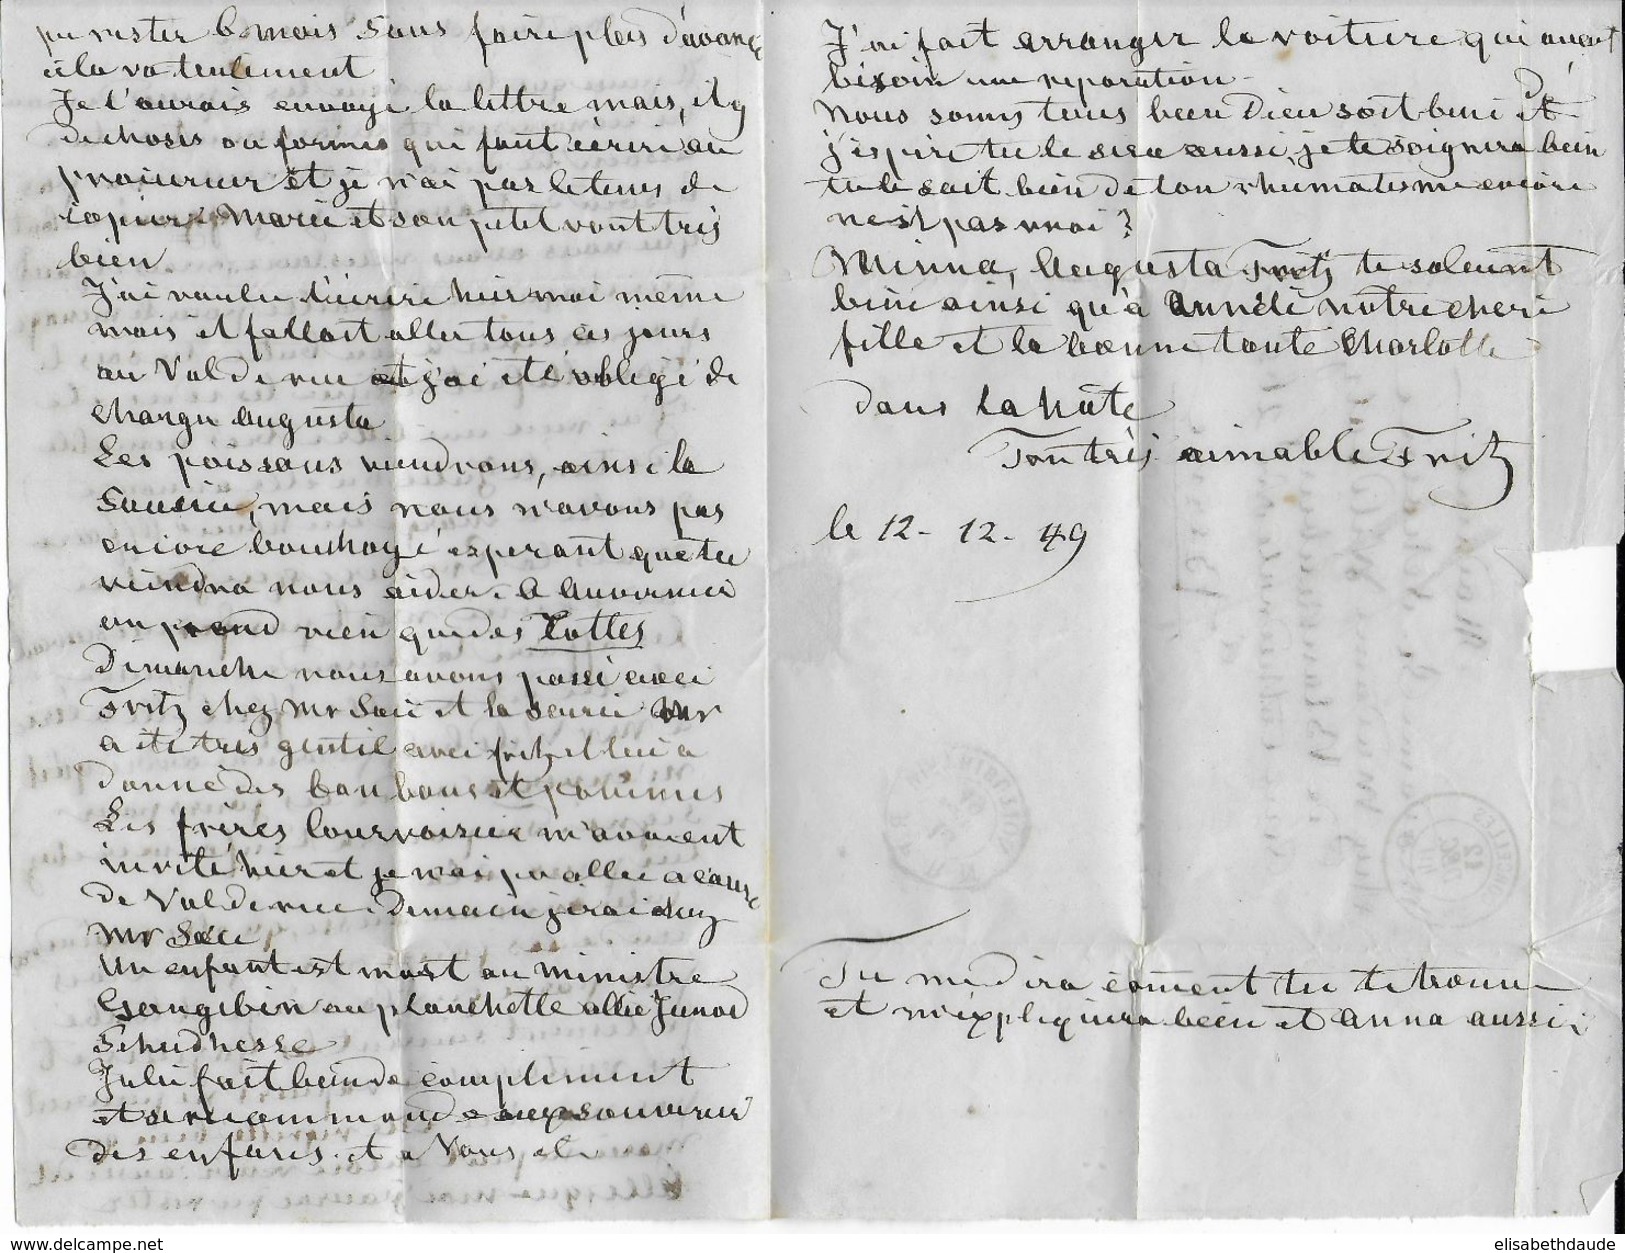 pu rester 6 mois sans faire plus d'avance
cela va seulement
Je t'aurais envoyé la lettre mais, il y
de choses ou formes qui faut écrire au
procureur et je n'ai pas le tems de
copier. Marie et son petit vont très
bien
J'ai voulu t'ecrire hier moi même
mais il falloit aller tous ces jours
au Val de rue et j'ai été obligé de
charger augusta
Les poissons viendrons, ainsi la
mais nous n'avons pas
encore bouchoyé esperant que tu
viendra nous aider. a auvernier
on prend rien que des Lottes
Dimanche nous avons passé avec
Fritz chez Mr et la Mr
a été tres gentil avec fritz et lui a
donné des bonbons et
Les frères Courvoisier m'avoient
invité hier et je n'ai pu aller a cause
de Val de rue. Demain j'irai chez
Mr
Un enfant est mort au ministre
au planchette allié Junod
Julie fait bein de compliment
et se recommande au souvenir
des enfans. et a Vous et
J'ai fait arranger la voiture qui avait
besoin une reparation -
Nous soms tous been Dieu soit beni et
j'espire tu le sera aussi, je te soignera bein
tu le sait bien de ton rhumatisme encore
n'est pas vrai?
Minna, Augusta Fritz te saluent
bien ainsi qu'à notre cheri
fille et la bonne tante Charlotte
dans la hâte
Ton très aimable Fritz
le 12 - 12 - 49
Tu me dira coment tu te trouve
et m'expliquera been et Anna aussi
elisabethdaude - delcampe.net